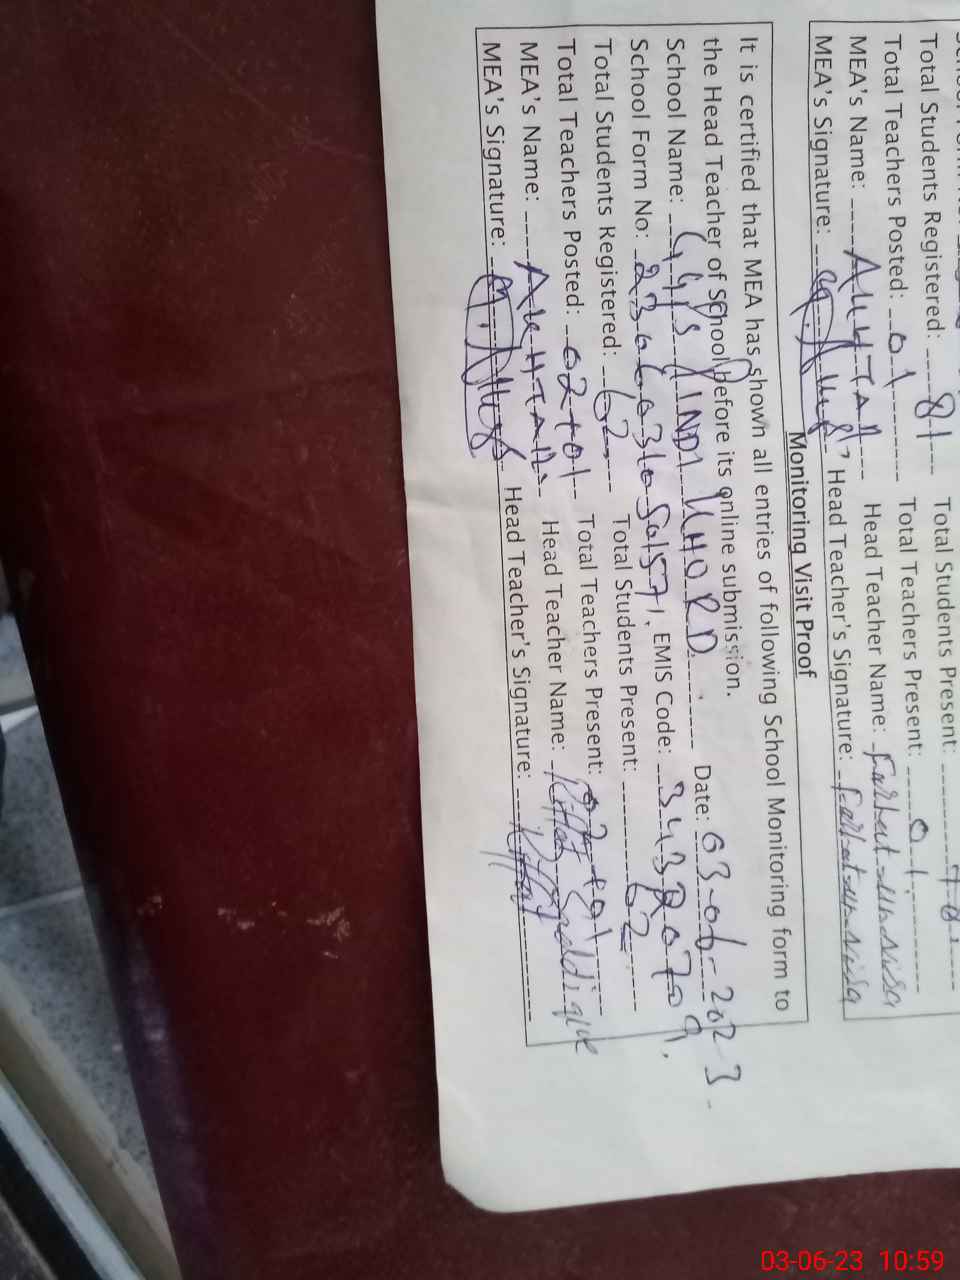 Total Students Registered: 81 Total Students Present:
Total Teachers Posted: 01 Total Teachers Present: 01
MEA's Name: AKHTAR Head Teacher Name: Farhat-un-nisa
MEA's Signature: Head Teacher's Signature: Farhat-un-nisa
Monitoring Visit Proof
It is certified that MEA has shown all entries of following School Monitoring form to
the Head Teacher of School before its online submission.
School Name: PINDI KHORD Date: 03-06-2023
School Form No: EMIS Code:
Total Students Registered: 62 Total Students Present: 62
Total Teachers Posted: 02+01 Total Teachers Present: 02+01
MEA's Name: AKHTAR Head Teacher Name: Riffat
MEA's Signature: Head Teacher's Signature: Riffat
03-06-23 10:59